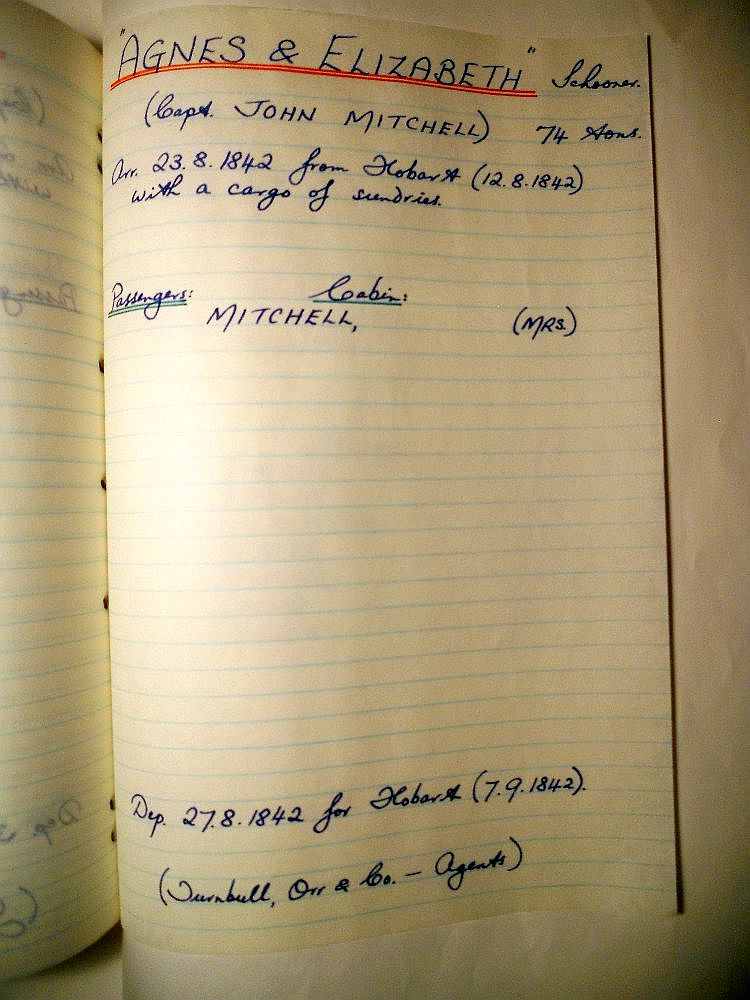 "AGNES & ELIZABETH" Schooner.
(Capt. JOHN MITCHELL) 74 tons.
Arr. 23.8.1842 from Hobart (12.8.1842)
with a cargo of sundries.
Passengers: Cabin:
MITCHELL, (MRS)
Dep. 27.8.1842 for Hobart (7.9.1842).
(Turnbull, Orr & Co. – Agents)